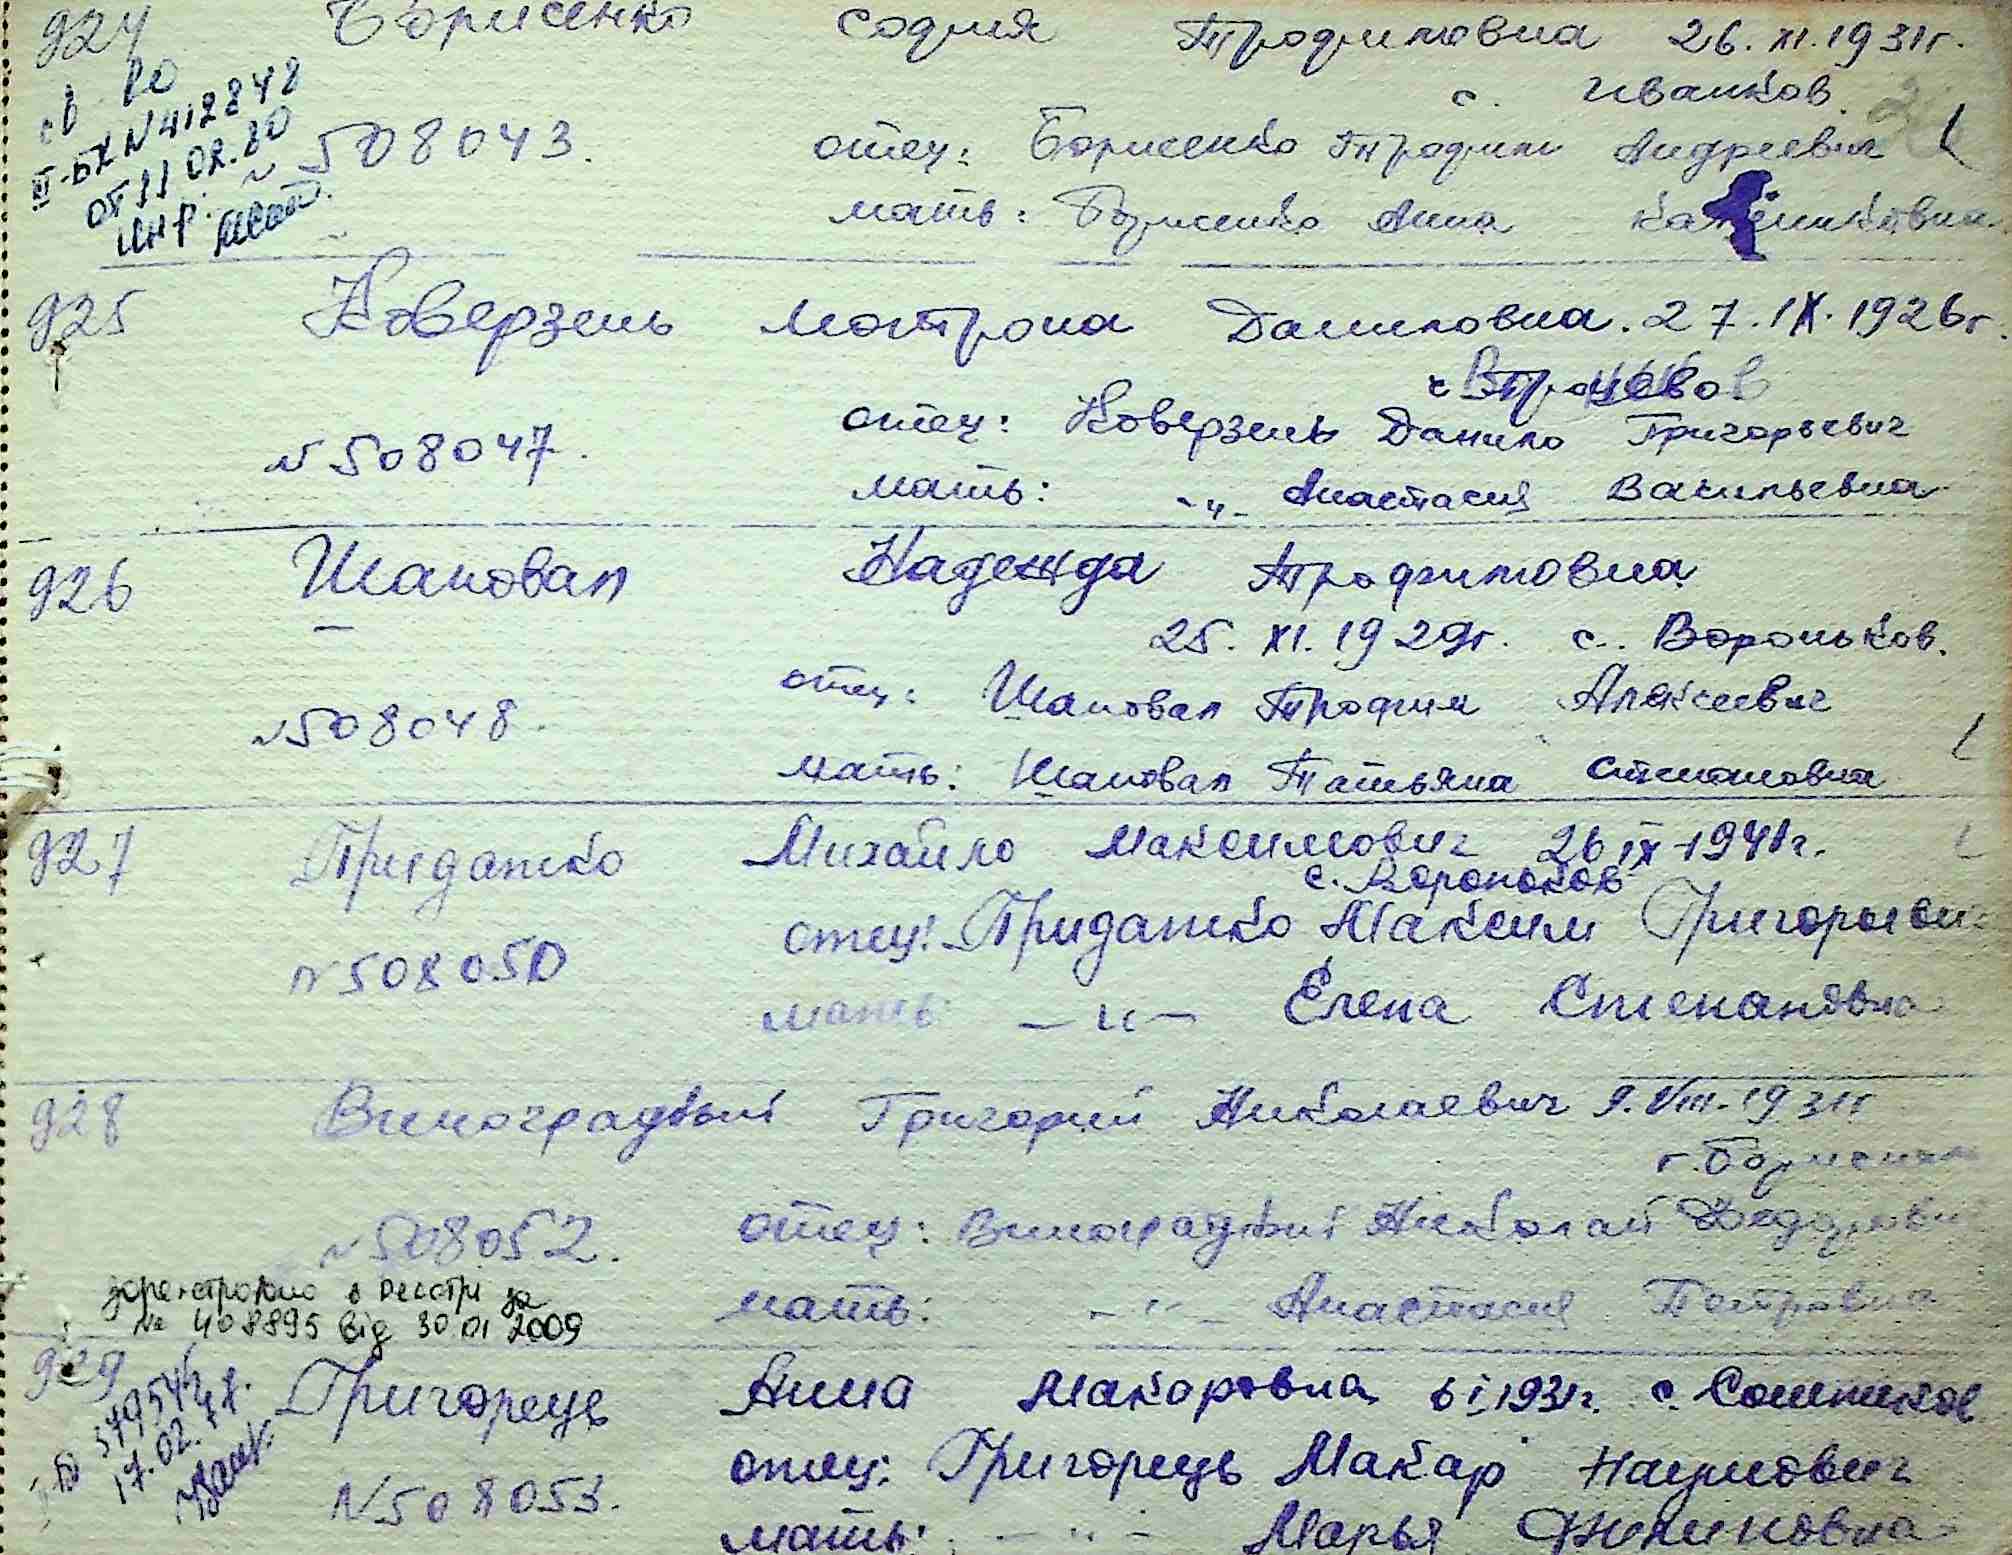 924 Борисенко София Трофимовна 26.XI.1931г.
с. Иванков.
св 80
III-БК N 412848
от 11 02.80
N 508043.
отец: Борисенко Трофим Андреевич
мать: Борисенко Анна
925 Коверзень Мотрона Даниловна. 27.IX.1926г.
с
отец: Коверзень Данило Григорьевич
N 508047.
мать: -"- Анастасия Васильевна
926 Шаповал Надежда Трофимовна
25.XI.1929г. с. Вороньков.
отец: Шаповал Трофим Алексеевич
N 508048.
мать: Шаповал Татьяна Степановна
927 Придатко Михайло Максимович 26 IX-1941г.
с. Вороньков
отец: Придатко Максим Григорьевич
N 508050
мать -"- Елена Степановна
928 Виноградный Григорий Николаевич 9.VIII.1931г
г. Борисполь
N 508052.
отец: Виноградный Николай Федорович
зареєстровано в реєстрі за
№ 408895 від 30 01 2009
мать: -"- Анастасия Петровна
929 Григорець Анна Макаровна 6 I.1931г. с. Сошников
17.02.
отец: Григорець Макар Наумович
N 508053.
мать: -"- Марья Филиповна